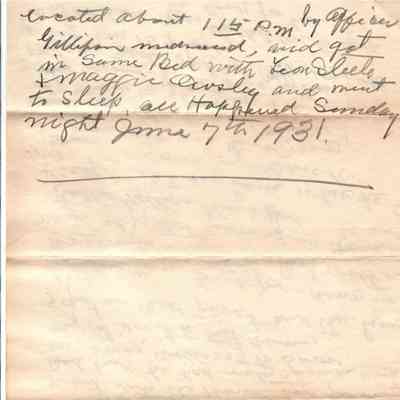 located about 1 15 P.M by Officer
Gillispie and got
in Same Bed with Leon Steele
+ Maggie Owsley and went
to Sleep, all Happened Sunday
night June 7th 1931.